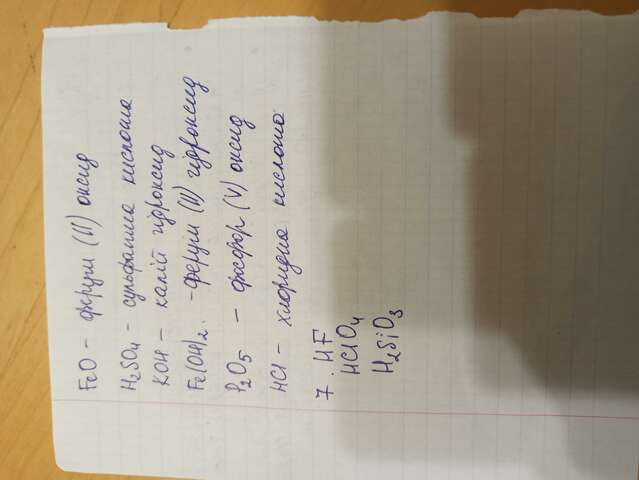 FeO – ферум (II) оксид
H₂SO₄ – сульфатна кислота
KOH – калій гідроксид
Fe(OH)₂ – ферум (II) гідроксид
P₂O₅ – фосфор (V) оксид
HCl – хлоридна кислота
7. HF
HClO₄
H₂SiO₃